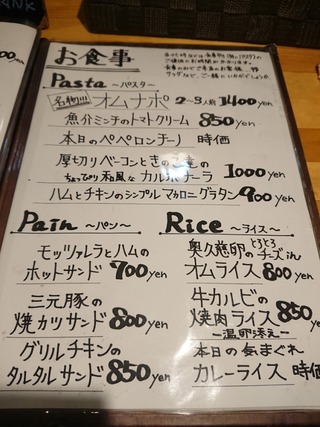 お食事
Pasta ～パスタ～
名物!!! オムナポ 2～3人前 1400yen
魚介ミンチのトマトクリーム 850yen
本日のペペロンチーノ 時価
厚切りベーコンときのこの
ちょっぴり和風な カルボナーラ 1000yen
ハムとチキンのシンプルマカロニグラタン 900yen
Pain ～パン～
モッツァレラとハムの
ホットサンド 700yen
三元豚の
焼カツサンド 800yen
グリルチキンの
タルタルサンド 850yen
Rice ～ライス～
奥久慈卵の とろとろチーズin
オムライス 800yen
牛カルビの
焼肉ライス 850yen
ー温卵添えー
本日の気まぐれ
カレーライス 時価